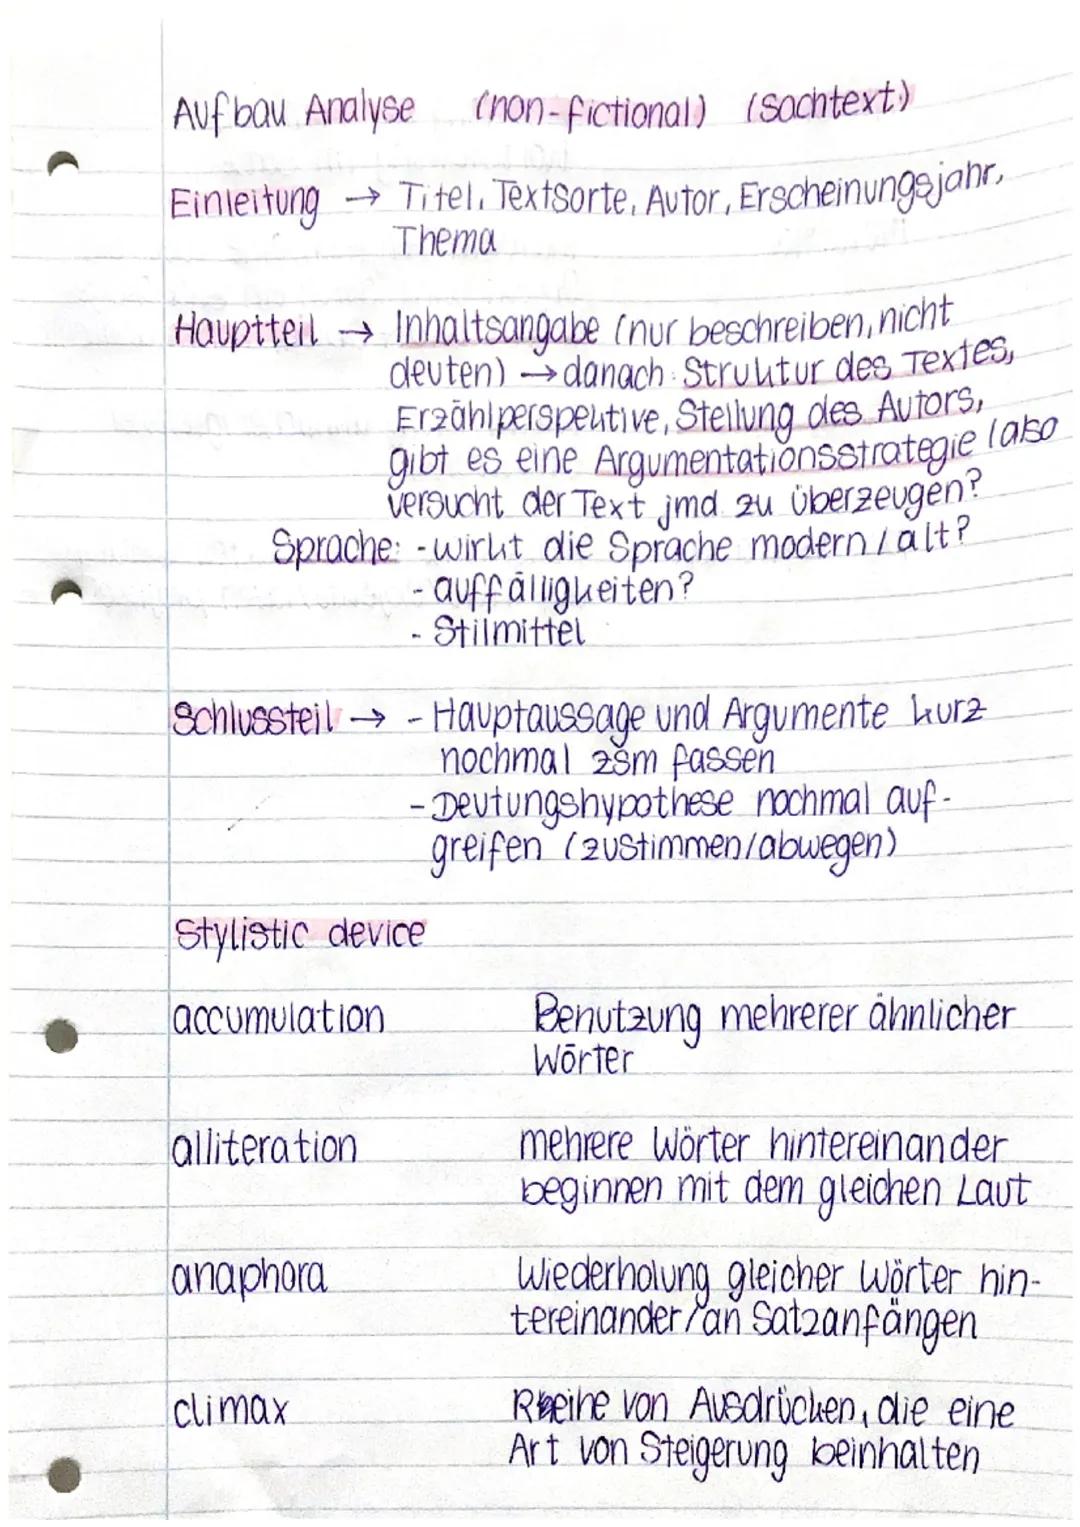 Aufbau Analyse (non-fictional) (Sachtext)
Einleitung → Titel, Textsorte, Autor, Erscheinungsjahr,
Thema
Hauptteil → Inhaltsangabe (nur beschreiben, nicht
deuten) → danach: Struktur des Textes,
Erzählperspektive, Stellung des Autors,
gibt es eine Argumentationsstrategie (also
versucht der Text jmd zu überzeugen?
Sprache: - wirkt die Sprache modern / alt?
- auffälligkeiten?
- Stilmittel
Schlussteil → - Hauptaussage und Argumente kurz
nochmal zsm fassen
- Deutungshypothese nochmal auf-
greifen (zustimmen/abwegen)
Stylistic device
accumulation Benutzung mehrerer ähnlicher
Wörter
alliteration mehrere Wörter hintereinander
beginnen mit dem gleichen Laut
anaphora Wiederholung gleicher Wörter hin-
tereinander / an Satzanfängen
climax Reihe von Ausdrücken, die eine
Art von Steigerung beinhalten